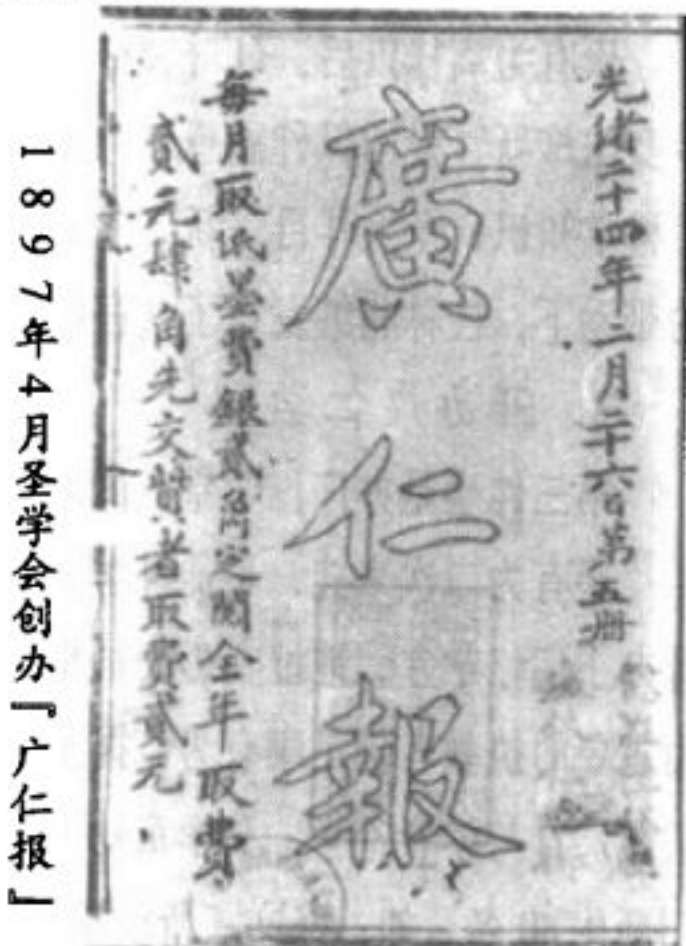 光緒二十四年二月二十六日第五冊
廣仁報
每月取紙墨費銀貳角定閱全年取費
貳元肆角先交貲者取費貳元
1897年4月圣学会创办『广仁报』